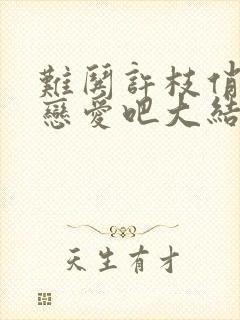 難鬪許枝俏
戀愛吧大結
天生有才